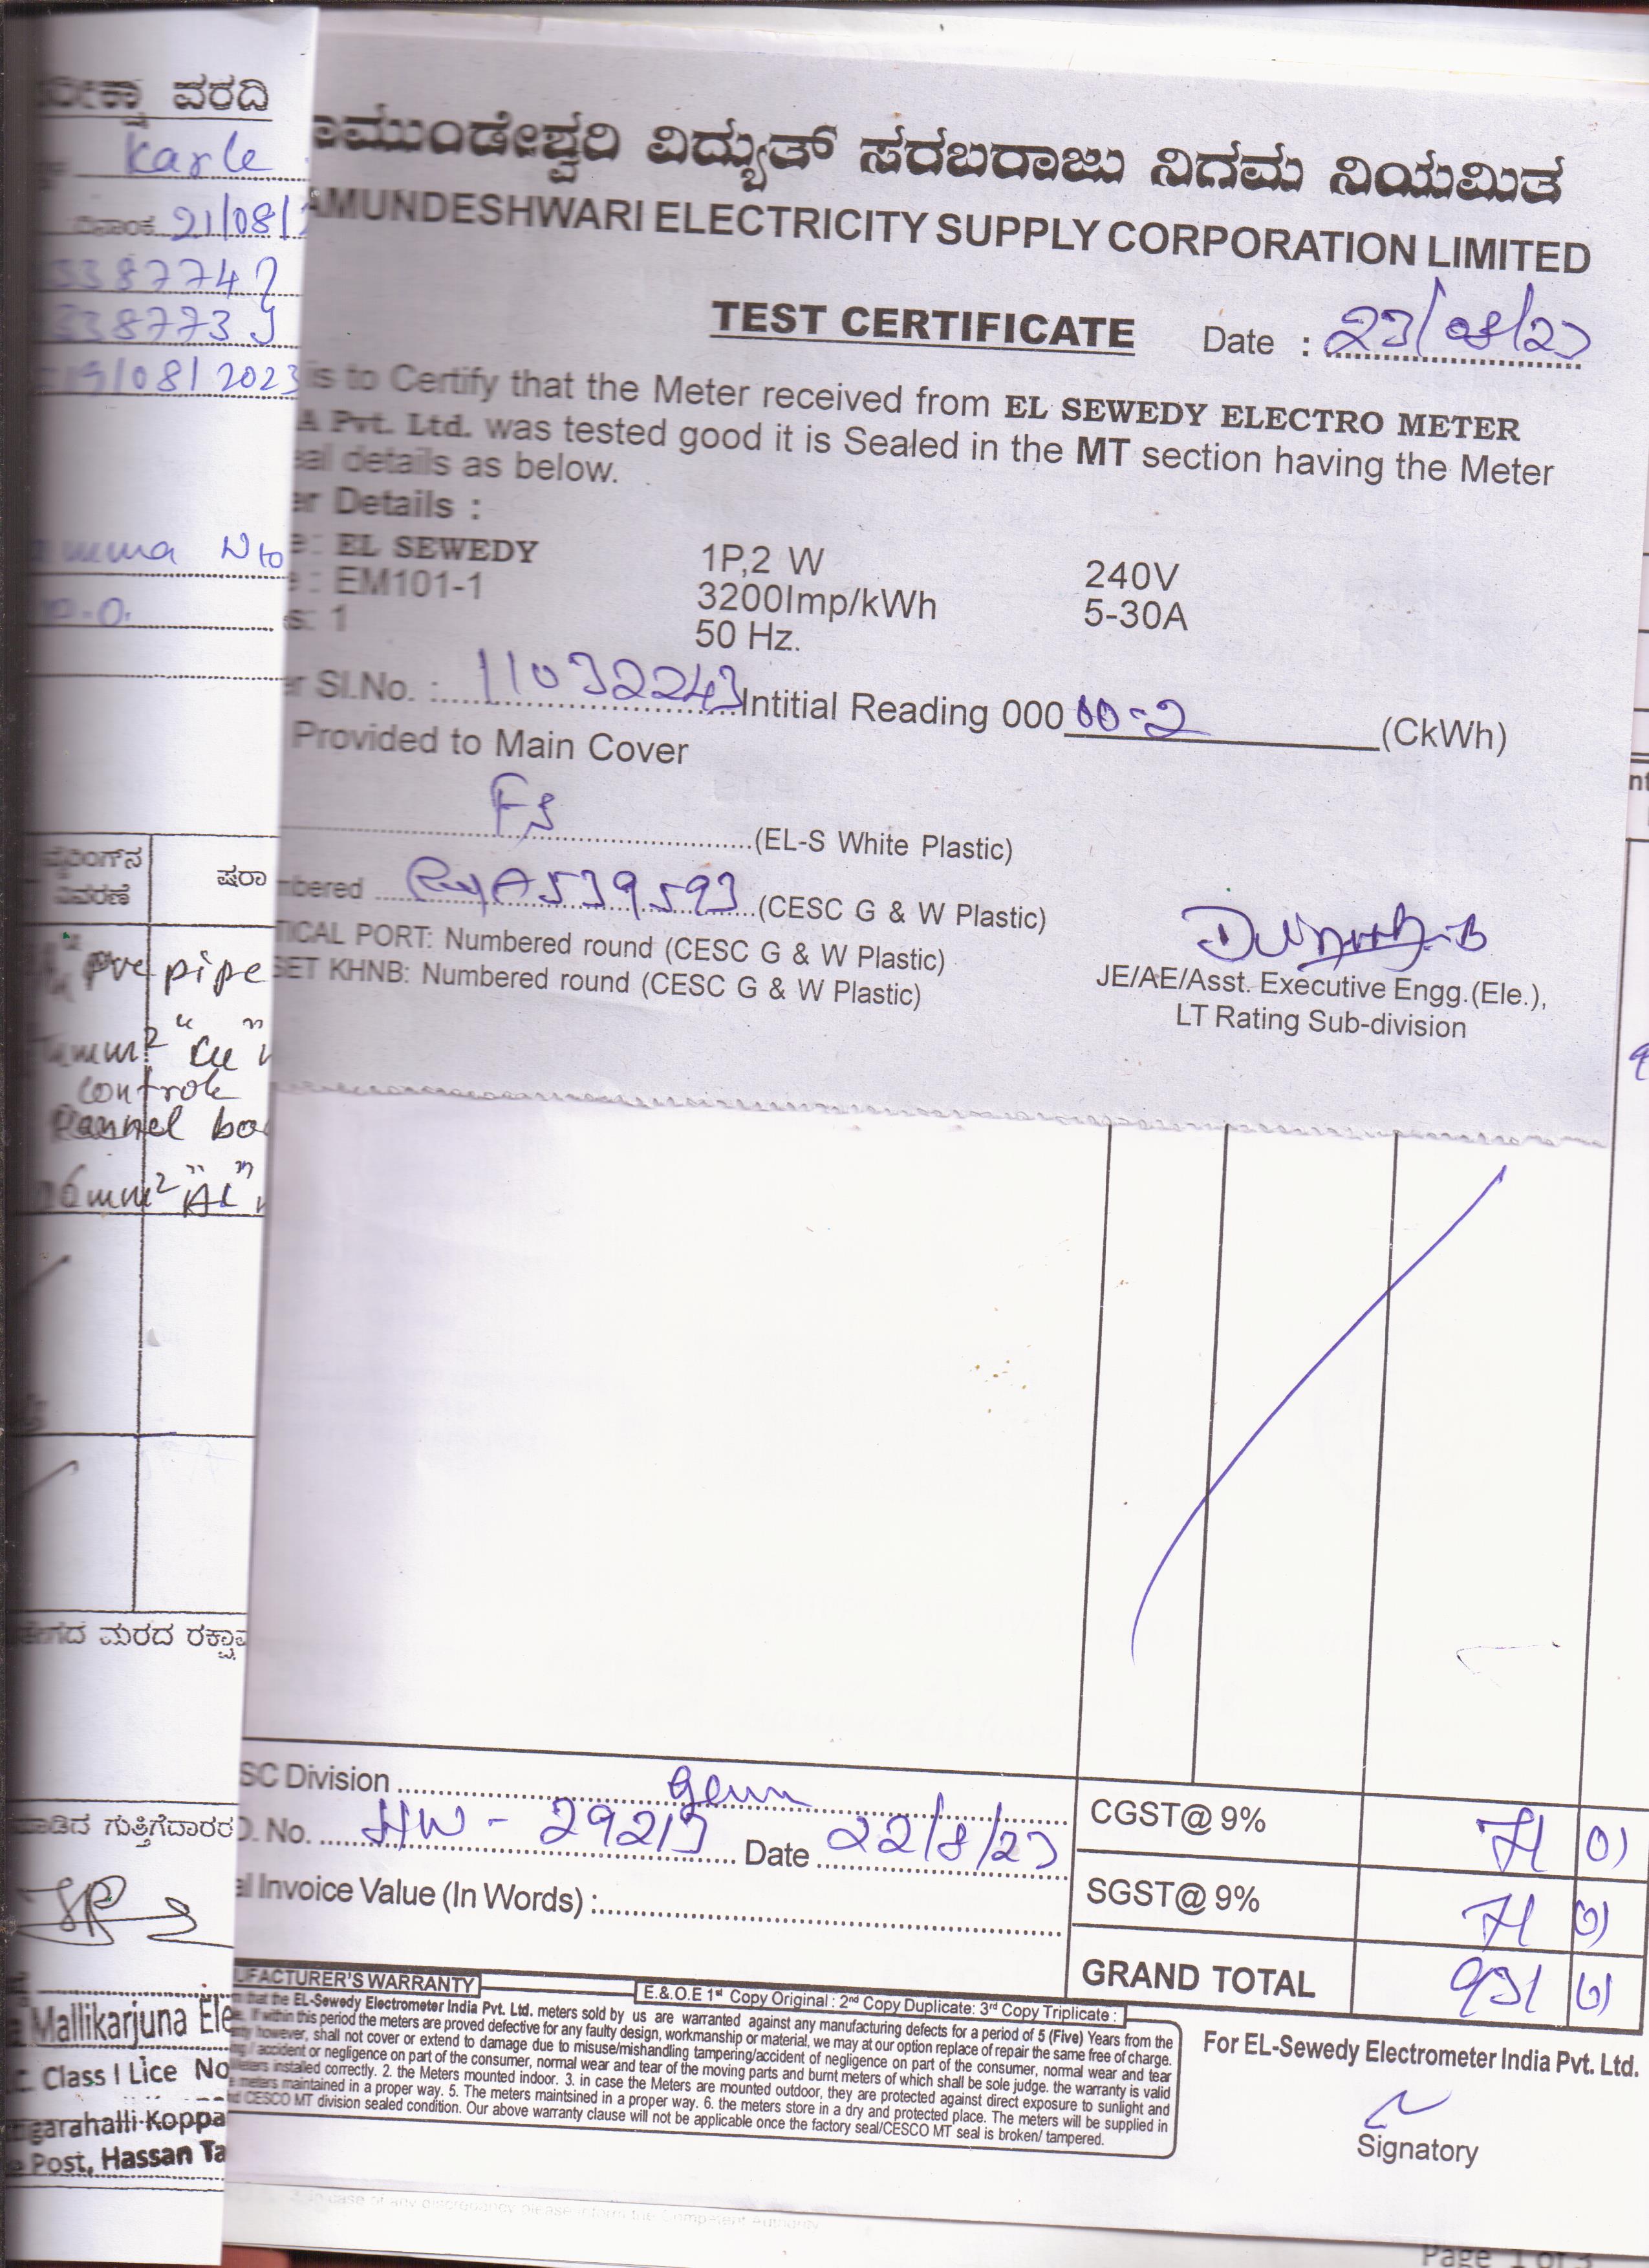 ವರದಿ
Karle
ದಿನಾಂಕ 21/08/
338773
19/08/2023
ವಿವರಣೆ
ಷರಾ
pvc pipe
control
Pannel
6mm² "AL"
ಮರದ
ಗುತ್ತಿಗೆದಾರರ
Mallikarjuna Ele
Class I Lice No
garahalli Koppa
Post, Hassan Ta
ಾಮುಂಡೇಶ್ವರಿ ವಿದ್ಯುತ್ ಸರಬರಾಜು ನಿಗಮ ನಿಯಮಿತ
AMUNDESHWARI ELECTRICITY SUPPLY CORPORATION LIMITED
TEST CERTIFICATE Date : 23/08/23
is to Certify that the Meter received from EL SEWEDY ELECTRO METER
A Pvt. Ltd. was tested good it is Sealed in the MT section having the Meter
al details as below.
er Details :
e: EL SEWEDY 1P,2 W 240V
e : EM101-1 3200Imp/kWh 5-30A
s: 1 50 Hz.
er Sl.No. : 11032243 Intitial Reading 000 00-2 (CkWh)
Provided to Main Cover
(EL-S White Plastic)
mbered A539593 (CESC G & W Plastic)
TICAL PORT: Numbered round (CESC G & W Plastic)
SET KHNB: Numbered round (CESC G & W Plastic)
JE/AE/Asst. Executive Engg.(Ele.),
LT Rating Sub-division
SC Division
O. No. HW - 29213 Date 22/8/23
al Invoice Value (In Words) :
CGST@ 9% 71 01
SGST@ 9% 71 01
GRAND TOTAL 931
UFACTURER'S WARRANTY
E.&.O.E 1st Copy Original : 2nd Copy Duplicate: 3rd Copy Triplicate :
that the EL-Sewedy Electrometer India Pvt. Ltd. meters sold by us are warranted against any manufacturing defects for a period of 5 (Five) Years from the
If within this period the meters are proved defective for any faulty design, workmanship or material, we may at our option replace of repair the same free of charge.
however, shall not cover or extend to damage due to misuse/mishandling tampering/accident of negligence on part of the consumer, normal wear and tear
/ accident or negligence on part of the consumer, normal wear and tear of the moving parts and burnt meters of which shall be sole judge. the warranty is valid
meters installed correctly. 2. the Meters mounted indoor. 3. in case the Meters are mounted outdoor, they are protected against direct exposure to sunlight and
meters maintained in a proper way. 5. The meters maintsined in a proper way. 6. the meters store in a dry and protected place. The meters will be supplied in
CESCO MT division sealed condition. Our above warranty clause will not be applicable once the factory seal/CESCO MT seal is broken/ tampered.
For EL-Sewedy Electrometer India Pvt. Ltd.
Signatory
in case of any discrepancy please inform the Competent Authority
Page 1 of 3